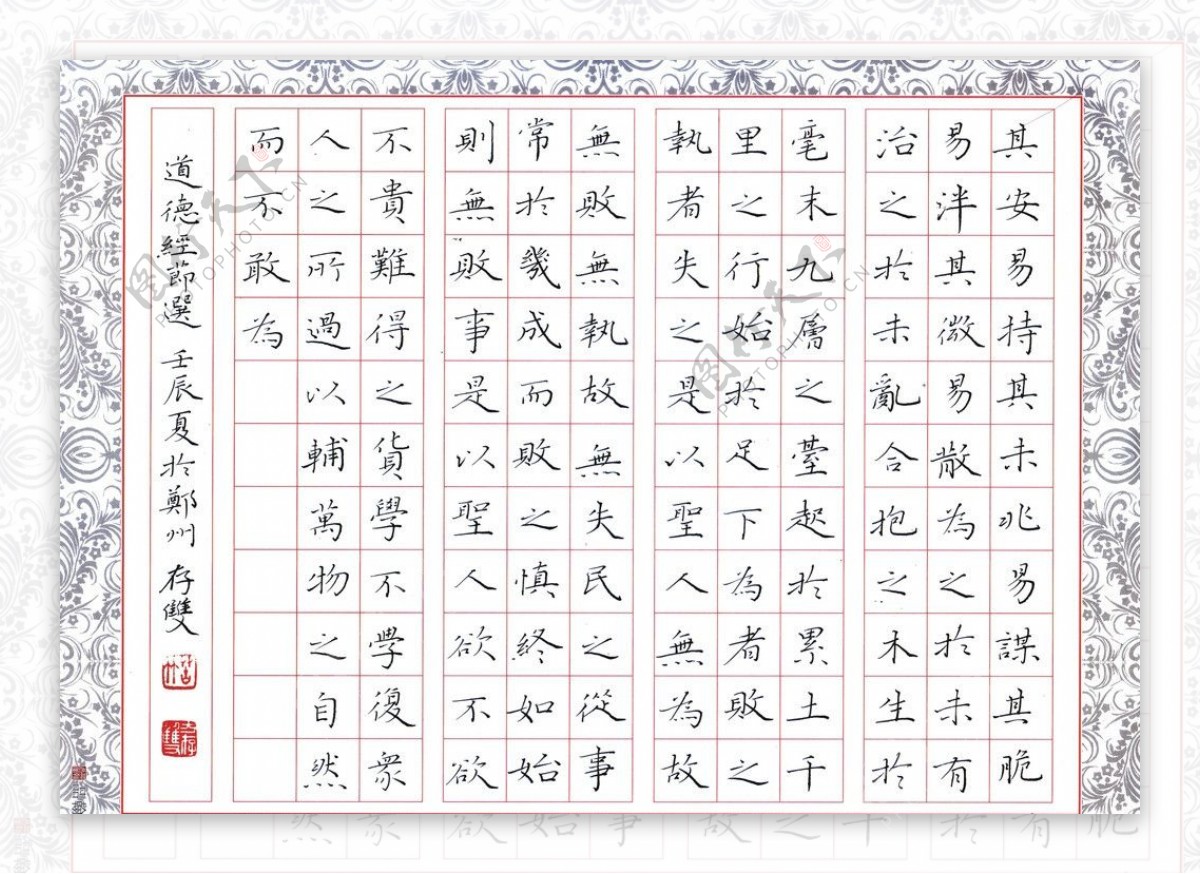 其安易持其未兆易謀其脆
易泮其微易散為之於未有
治之於未亂合抱之木生於
毫末九層之臺起於累土千
里之行始於足下為者敗之
執者失之是以聖人無為故
無敗無執故無失民之從事
常於幾成而敗之慎終如始
則無敗事是以聖人欲不欲
不貴難得之貨學不學復衆
人之所過以輔萬物之自然
而不敢為
道德經節選 壬辰夏於鄭州 存雙
图行天下
PHOTOPHOTO.CN
图行天下
PHOTOPHOTO.CN